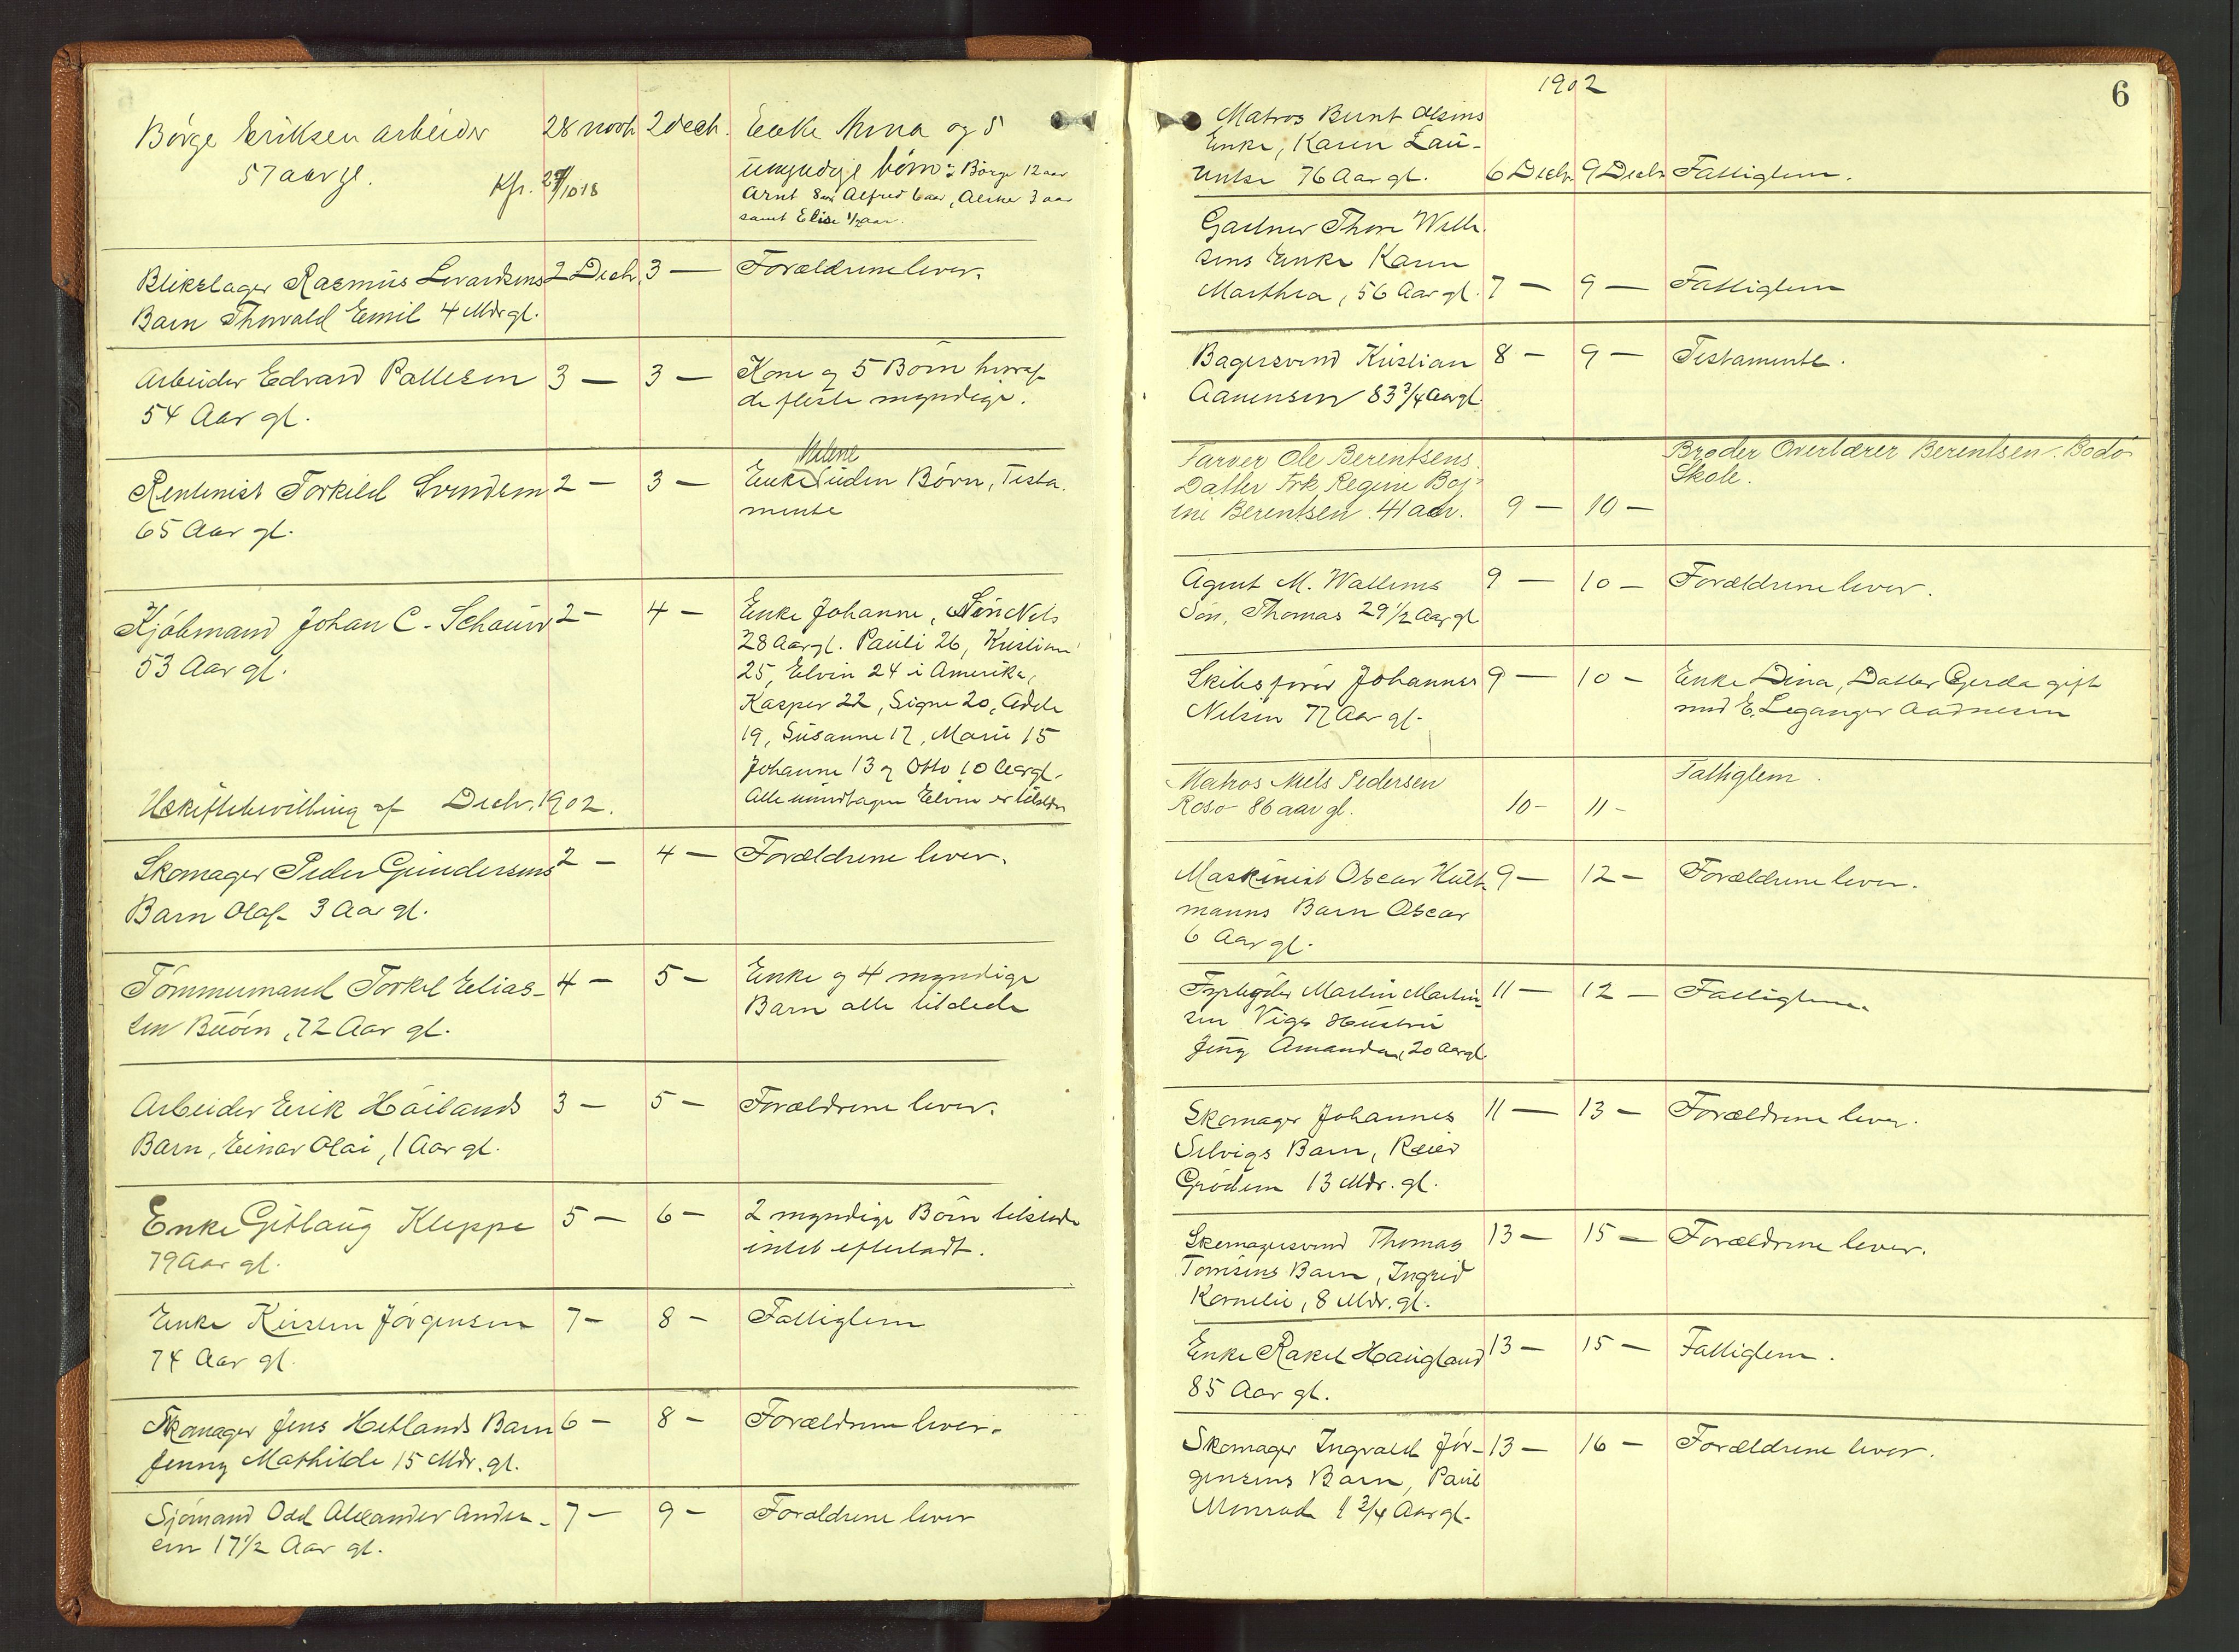 Børge Eriksen arbeider 28 novb 2 decb. Enke Anna og 5
57 aar gl. umyndige børn: Børge 12 aar
Kfr. 29/10 18 Arnt 8 aar Alfred 6 aar, 3 aar
samt Elise 1/2 aar.
Blikslager Rasmus 2 Decb. 3 — Forældrene lever.
Barn Thorvald Emil 4 Mdr gl.
Arbeider Edvard Pallesen 3 — 3 — Kone og 5 Børn hvoraf
54 Aar gl. de fleste myndige.
Helene
Rentenist Torkild Svendsen 2 — 3 — Enke uden Børn, Testa
65 Aar gl. mente
Kjøbmand Johan C. Schouw 2 — 4 — Enke Johanne, Søn Nels
53 Aar gl. 28 Aar gl. Pauli 26, Kristian
25, Elvin 24 i Amerika,
Kasper 22, Signe 20, Adele
19, Susanne 17, Marie 15
Johanne 13 og Otto 10 Aar gl.
Uskiftebevilling af Decbr. 1902. Alle undtagen Elvin er tilstede
Skomager Peder Gundersens 2 — 4 — Forældrene lever.
Barn Olaf 3 Aar gl.
Tømmermand Torkel Elias- 4 — 5 — Enke og 4 myndige
sen Buøen, 72 Aar gl. Barn alle tilstede
Arbeider Erik Høilands 3 — 5 — Forældrene lever.
Barn, Einar Olai, 1 Aar gl.
Enke Gitlaug Kleppe 5 — 6 — 2 myndige Børn tilstede
79 Aar gl. intet efterladt.
Enke Kirsten Jørgensen 7 — 8 — Fattiglem
74 Aar gl.
Skomager Jens Hetlands Barn 6 — 8 — Forældrene lever.
Jenny Mathilde 15 Mdr. gl.
Sjømand Odd Alexander Ander- 7 — 9 — Forældrene lever
sen 17 1/2 Aar gl.
1902 6
Matros Bernt Olsens
Enke, Karen Lau-
6 Decbr. 9 Decbr. Fattiglem.
76 Aar gl.
Gartner Thore Wille
sens Enke Karen
Marthea, 56 Aar gl. 7 — 9 — Fattiglem
Bagersvend Kristian 8 — 9 — Testamente.
Aanensen 83 3/4 Aar gl
Farver Ole Berentsens Broder Overlærer Berentsen, Bodø
Datter Frk Regine Boj- Skole.
ine Berentsen 41 aar. 9 — 10 —
Agent M. Wallems 9 — 10 — Forældrene lever.
Søn, Thomas 29 1/2 Aar gl
Skibsfører Johannes 9 — 10 — Enke Dina, Datter Gerda gift
Nelsen 77 Aar gl. med E. Leganger Aadnesen
Matros Niels Pedersen Fattiglem.
Rosø 86 aar gl. 10 — 11 —
Maskinist Oscar Hult- 9 — 12 — Forældrene lever.
manns Barn Oscar
6 Aar gl.
Fyrbøder Martin Martin- 11 — 12 — Fattiglem.
sen Vigs Hustru
Jeny Amanda, 20 Aar gl.
Skomager Johannes 11 — 13 — Forældrene lever.
Selvigs Barn, Reier
Grødem 13 Mdr. gl.
Skomagersvend Thomas 13 — 15 — Forældrene lever.
Tønsens Barn, Ingrid
Kornelie, 8 Mdr. gl.
Enke Rakel Haugland 13 — 15 — Fattiglem.
85 Aar gl.
Skomager Ingvald Jør- 13 — 16 — Forældrene lever.
gensens Barn, Paul
Monrad 1 3/4 Aar gl.